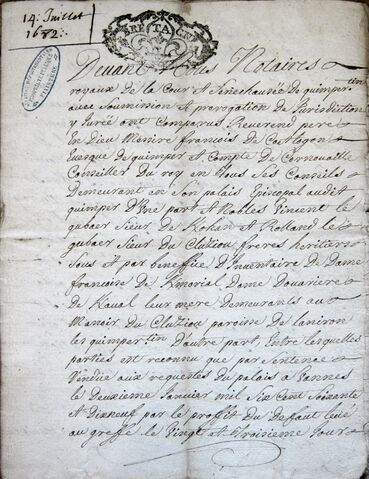 14: Juillet
1682:
BRETAGNE
Devant Nous Notaires
royaux de la Cour et Senechausée de quimper tin
avec Soumission et prorogation de Jurisdiction
y Jurée ont comparus Reverend pere
En Dieu Messire francois de Coetlogon
Evesque de quimper et Compte de Cornouaille
Conseiller Du roy en tous Ses Conseils
Demeurant en Son palais Episcopal audit
quimper D'Une part et Nobles Vincent le
gubaer Sieur de et Rolland le
gubaer Sieur du Cluziou freres heritiers
Sous et par beneffice D'Inventaire de Dame
francoise de Kmorial Dame Douariere
de Kaval leur mere Demeurants au
Manoir du Cluziou paroisse de laniron
les quimpertin d'autre part, Entre lesquelles
parties est reconnu que par Sentence
Rendue aux requestes du palais a Vannes
le deuxieme Januier mil Six Cent Soixante
et Dixneuf par le proffit du deffaut levé
au greffe le Vingt et troisieme Jour